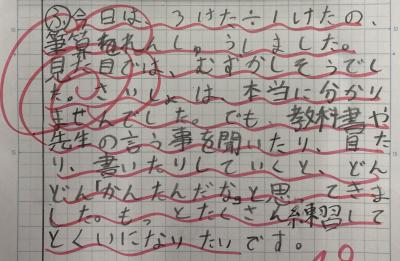 ふ今日は、3けた÷1けたの、
筆算をれんしゅうしました。
見た目では、むずかしそうでし
た。さいしょは、本当に分かり
ませんでした。でも、教科書や
先生の言う事を聞いたり、見た
り、書いたりしていくと、どん
どん「かんたんだな。」と思ってきま
した。もっとたくさん練習して
とくいになりたいです。